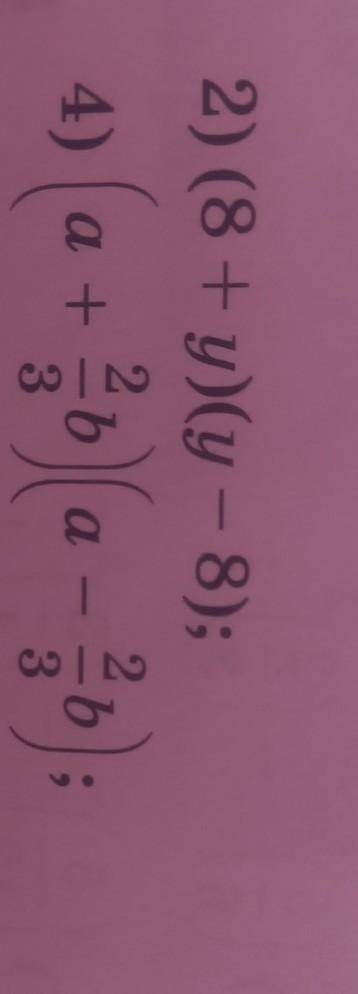 2) (8 + y)(y − 8);
4) (a + 2/3 b)(a − 2/3 b);